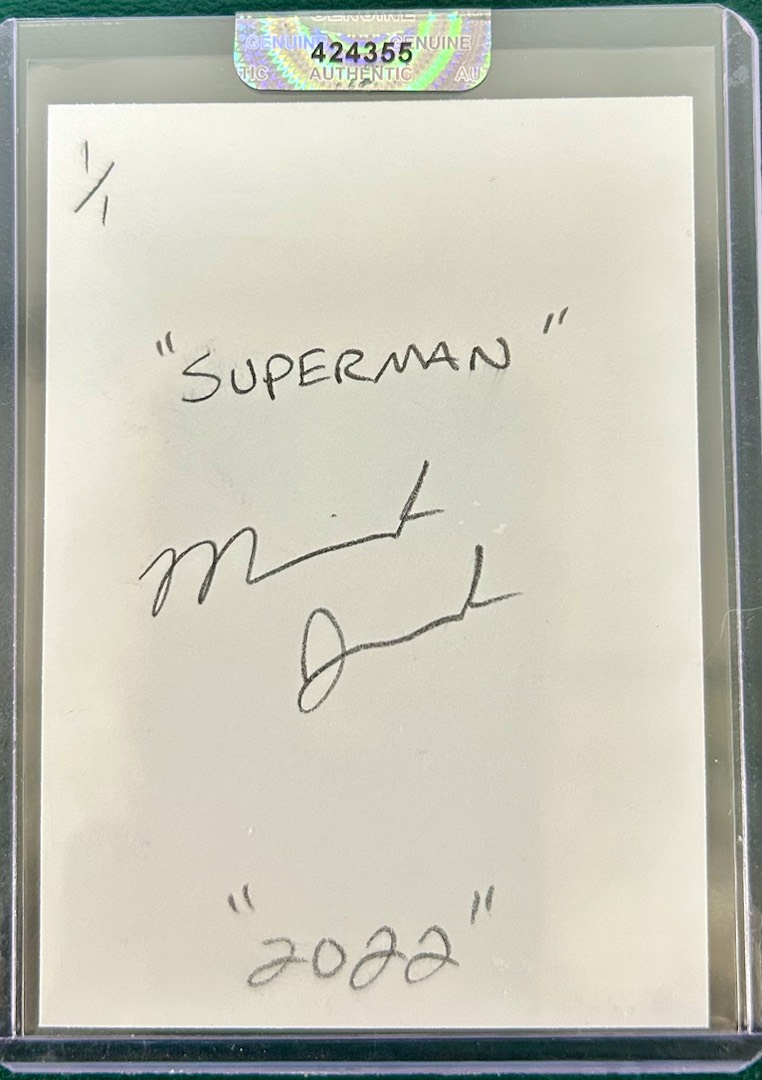 GENUINE
GENUINE 424355 GENUINE
TIC AUTHENTIC AU
1/1
"SUPERMAN"
"2022"